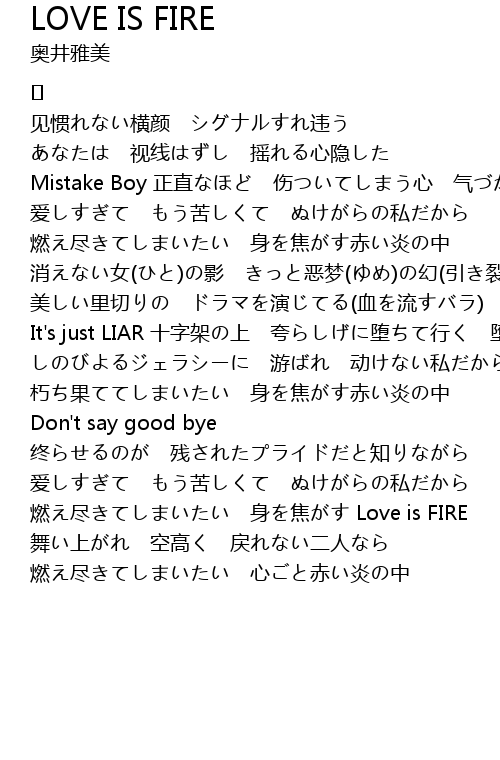 LOVE IS FIRE
奥井雅美
[]
见惯れない横颜　シグナルすれ违う
あなたは　视线はずし　摇れる心隠した
Mistake Boy 正直なほど　伤ついてしまう心　気づか
爱しすぎて　もう苦しくて　ぬけがらの私だから
燃え尽きてしまいたい　身を焦がす赤い炎の中
消えない女(ひと)の影　きっと恶梦(ゆめ)の幻(引き裂
美しい里切りの　ドラマを演じてる(血を流すバラ)
It's just LIAR 十字架の上　夸らしげに堕ちて行く　堕
しのびよるジェラシーに　游ばれ　动けない私だから
朽ち果ててしまいたい　身を焦がす赤い炎の中
Don't say good bye
终らせるのが　残されたプライドだと知りながら
爱しすぎて　もう苦しくて　ぬけがらの私だから
燃え尽きてしまいたい　身を焦がす Love is FIRE
舞い上がれ　空高く　戻れない二人なら
燃え尽きてしまいたい　心ごと赤い炎の中